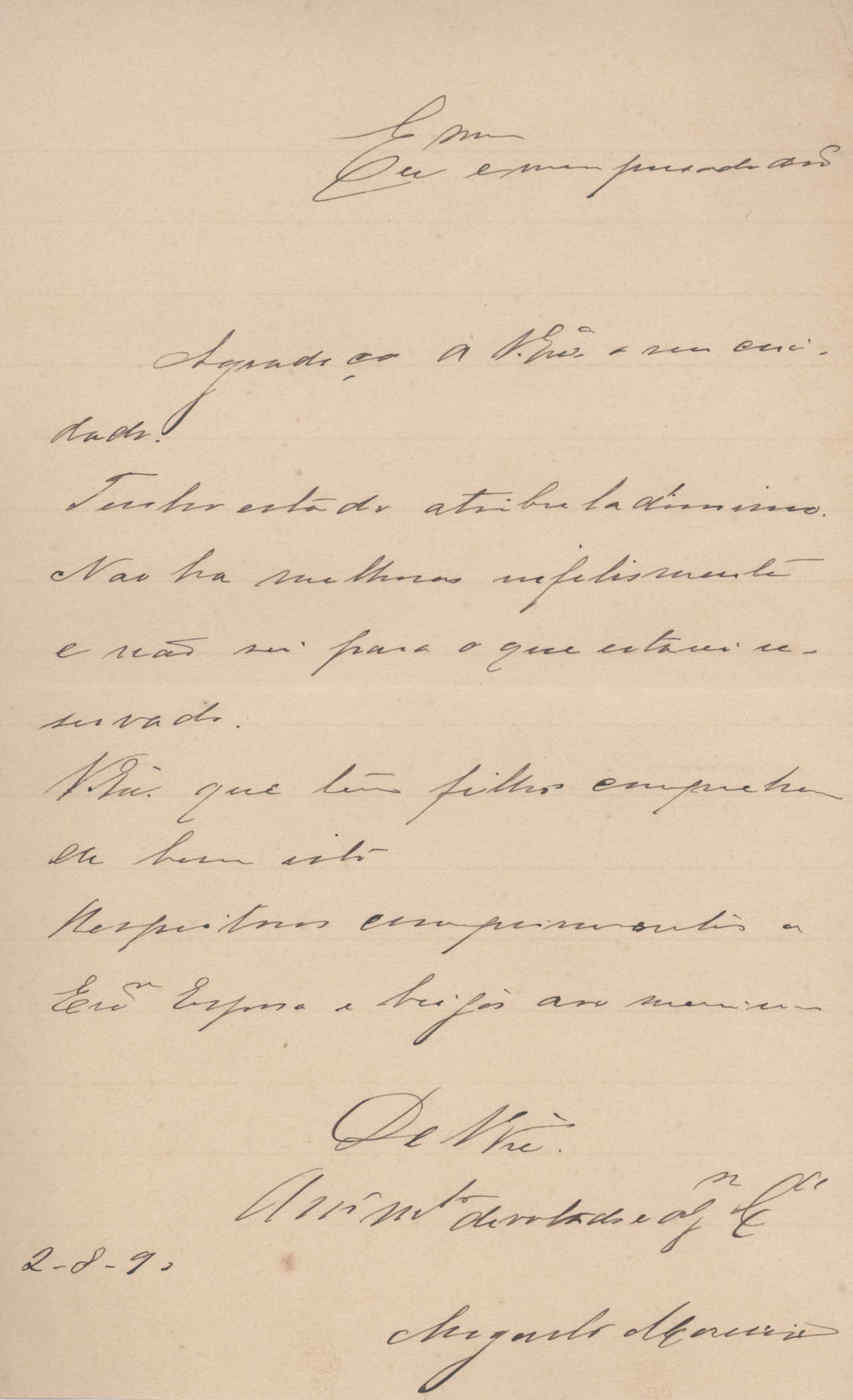 Exmo
Sr e meu prezado amo
Agradeço a V. Exa. o seu cui-
dado.
Tenho estado atribuladissimo.
Nao ha melhoras infelismente
e não sei para o que estarei re-
servado.
V. Exa. que tem filhos comprehen
de bem isto
Respeitosos comprimentos a
Exma Esposa e beijos aos meninos
De V. Exa.
Amo mto devotado e obgo
2-8-90
Augusto Moreira